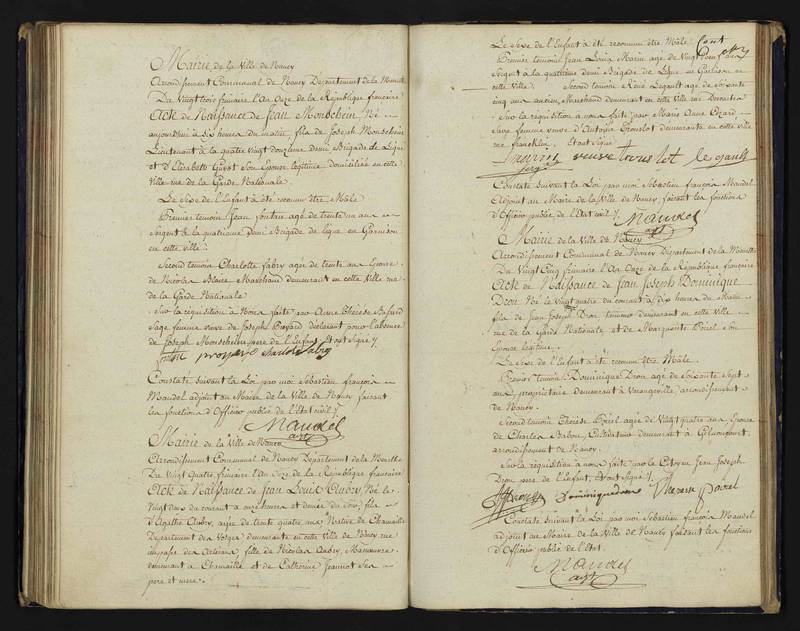 Mairie de la Ville de Nancy
Arrondissement Communal de Nancy Département de la Meurthe
Du Vingt trois frimaire l'An Onze de la République française
Acte de Naissance de Jean Monschein, Né
aujourdhui à six heures du matin, fils de Joseph Monschein
Lieutenant à la quatre Vingt douzieme demi Brigade de Ligne
et d'Elisabethe Guyot Son Epouse légitime domiciliée en cette
Ville rue de la Garde Nationale.
Le Sexe de l'Enfant à été reconnu être Mâle
Premier temoin Jean agé de trente un ans
Sergent à la quatrieme Demi Brigade de ligne en Garnison
en cette ville.
Second temoin Charlotte fabry agée de trente ans Epouse
de Nicolas Marchand demeurant en cette Ville rue
de la Garde Nationale
Sur la requisition à Nous faite par Anne Thérèse
Sage femme veuve de Joseph déclarant pour l'absence
de Joseph Monschein pere de l'Enfant Et ont Signé
prosper Charlote fabry
Constaté Suivant la Loi par moi Sébastien françois
Mandel adjoint au Maire de la Ville de Nancy faisant
les fonctions d'Officier public de l'Etat civil.
Mandel
adjt
Mairie de la Ville de Nancy
Arrondissement Communal de Nancy Département de la Meurthe
Du Vingt Quatre frimaire l'An Onze de la République française
Acte de Naissance de Jean Louis Aubry, Né le
Vingt deux du courant à onze heures et demie du Soir, fils
d'Agathe Aubry, agée de trente quatre ans Native de Chamaille
Département des Vosges demeurante en cette Ville de Nancy rue
impasse des Artisans, fille de Nicolas Aubry, Manœuvre
demeurant à Chamaille et de Catherine Jeannot Ses
pere et mere.
Le Sexe de l'Enfant à été reconnu être Mâle
Premier temoin Jean Louis Marin agé de vingt ans
Sergent à la quatrieme demi Brigade de Ligne en Garnison en
cette Ville. Second temoin René Legault agé de soixante
cinq ans ancien Marchand demeurant en cette Ville rue
Sur la requisition à nous faite par Marie Anne
Sage femme veuve d'Antoine Trouslot demeurante en cette ville
rue franklin. Et ont Signé
veuve trouslot le gault
Constaté Suivant la Loi par moi Sébastien françois Mandel
Adjoint au Maire de la Ville de Nancy, faisant les fonctions
d'Officier public de l'Etat civil.
Mandel
adjt
Mairie de la Ville de Nancy
Arrondissement Communal de Nancy Département de la Meurthe
Du Vingt Cinq frimaire l'An Onze de la République française
Acte de Naissance de Jean Joseph Dominique
Dron Né le Vingt quatre du courant à dix heures du Matin
fils de Jean Joseph Dron demeurant en cette ville
rue de la Garde Nationale et de Marguerite Poirel Son
Epouse légitime.
Le Sexe de l'Enfant à été reconnu être Mâle.
Premier temoin Dominique Dron agé de Soixante Sept
ans, propriétaire demeurant à Varangeville, arrondissement
de Nancy.
Second temoin Thérèse Poirel agée de Vingt quatre ans, Epouse
de Charles Cultivateur demeurant à
arrondissement de Nancy.
Sur la requisition à nous faite par le Citoyen Jean Joseph
Dron pere de l'Enfant, Et ont Signé
Dominique dron Therese poirel
Constaté Suivant la Loi par moi Sébastien françois Mandel
adjoint au Maire de la Ville de Nancy faisant les fonctions
d'Officier public de l'Etat.
Mandel
adjt